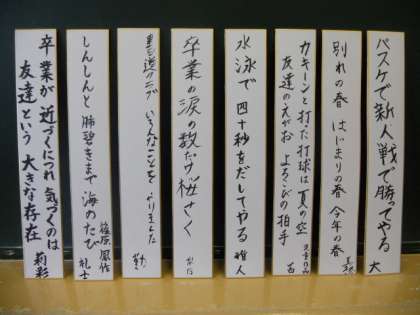 バスケで新人戦で勝ってやる 大
別れの春 はじまりの春 今年の春
カキーンと打た打球は夏の空
友達のえがお よろこびの拍手
水泳で 四十秒をだしてやる 雅人
卒業の涙の数だけ桜さく
いろんなことを やりました
しんしんと 肺碧きまで 海のたび
篠原鳳作 礼士
卒業が 近づくにつれ 気づくのは
友達という 大きな存在 莉彩